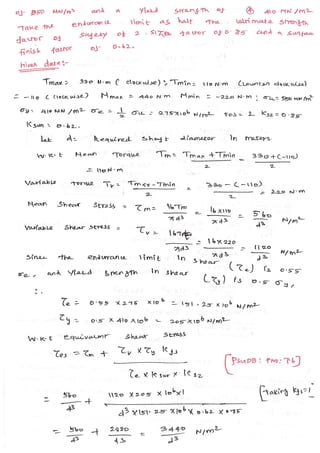 of 550 MN/m² and a Yield strength of 410 MN/m²
Take the endurance limit as half the ultimate strength,
factor of safety of 2. size factor of 0.85 and a surface
finish factor of 0.62.
Given data:-
Tmax: 330 N·m (clockwise); Tmin = 110 N·m (Counter clockwise)
= -110 (clockwise) Mmax = 440 N·m Mmin = -220 N·m; σu = 550 MN/m²
σy = 410 MN/m² σe = 1/2 σu = 275×10⁶ N/m² FOS = 2 Ksz = 0.85
Ksur = 0.62.
Let d = Required shaft diameter in meters
W·K·T Mean Torque Tm = Tmax + Tmin / 2 = 330 + (-110) / 2
= 110 N·m
Variable torque Tv = Tmax - Tmin / 2 = 330 - (-110) / 2 = 220 N·m
Mean Shear Stress = τm = 16Tm / πd³ = 16×110 / πd³ = 560 / d³ N/m²
Variable shear stress = τv = 16Tv / πd³ = 16×220 / πd³ = 1120 / d³ N/m²
Since the endurance limit in shear (τe) is 0.55
σe, and Yield strength in shear (τy) is 0.5 σy,
∴
τe = 0.55 × 275 × 10⁶ = 151.25×10⁶ N/m²
τy = 0.5 × 410×10⁶ = 205×10⁶ N/m²
W·K·T equivalent shear stress
τes = τm + τv × τy Kfs / τe × Ksur × Ksz
= 560 / d³ + 1120 × 205 × 10⁶×1 / d³ × 151.25×10⁶ × 0.62 × 0.85 [Taking Kfs=1]
= 560 / d³ + 2880 / d³ = 3440 / d³ N/m²